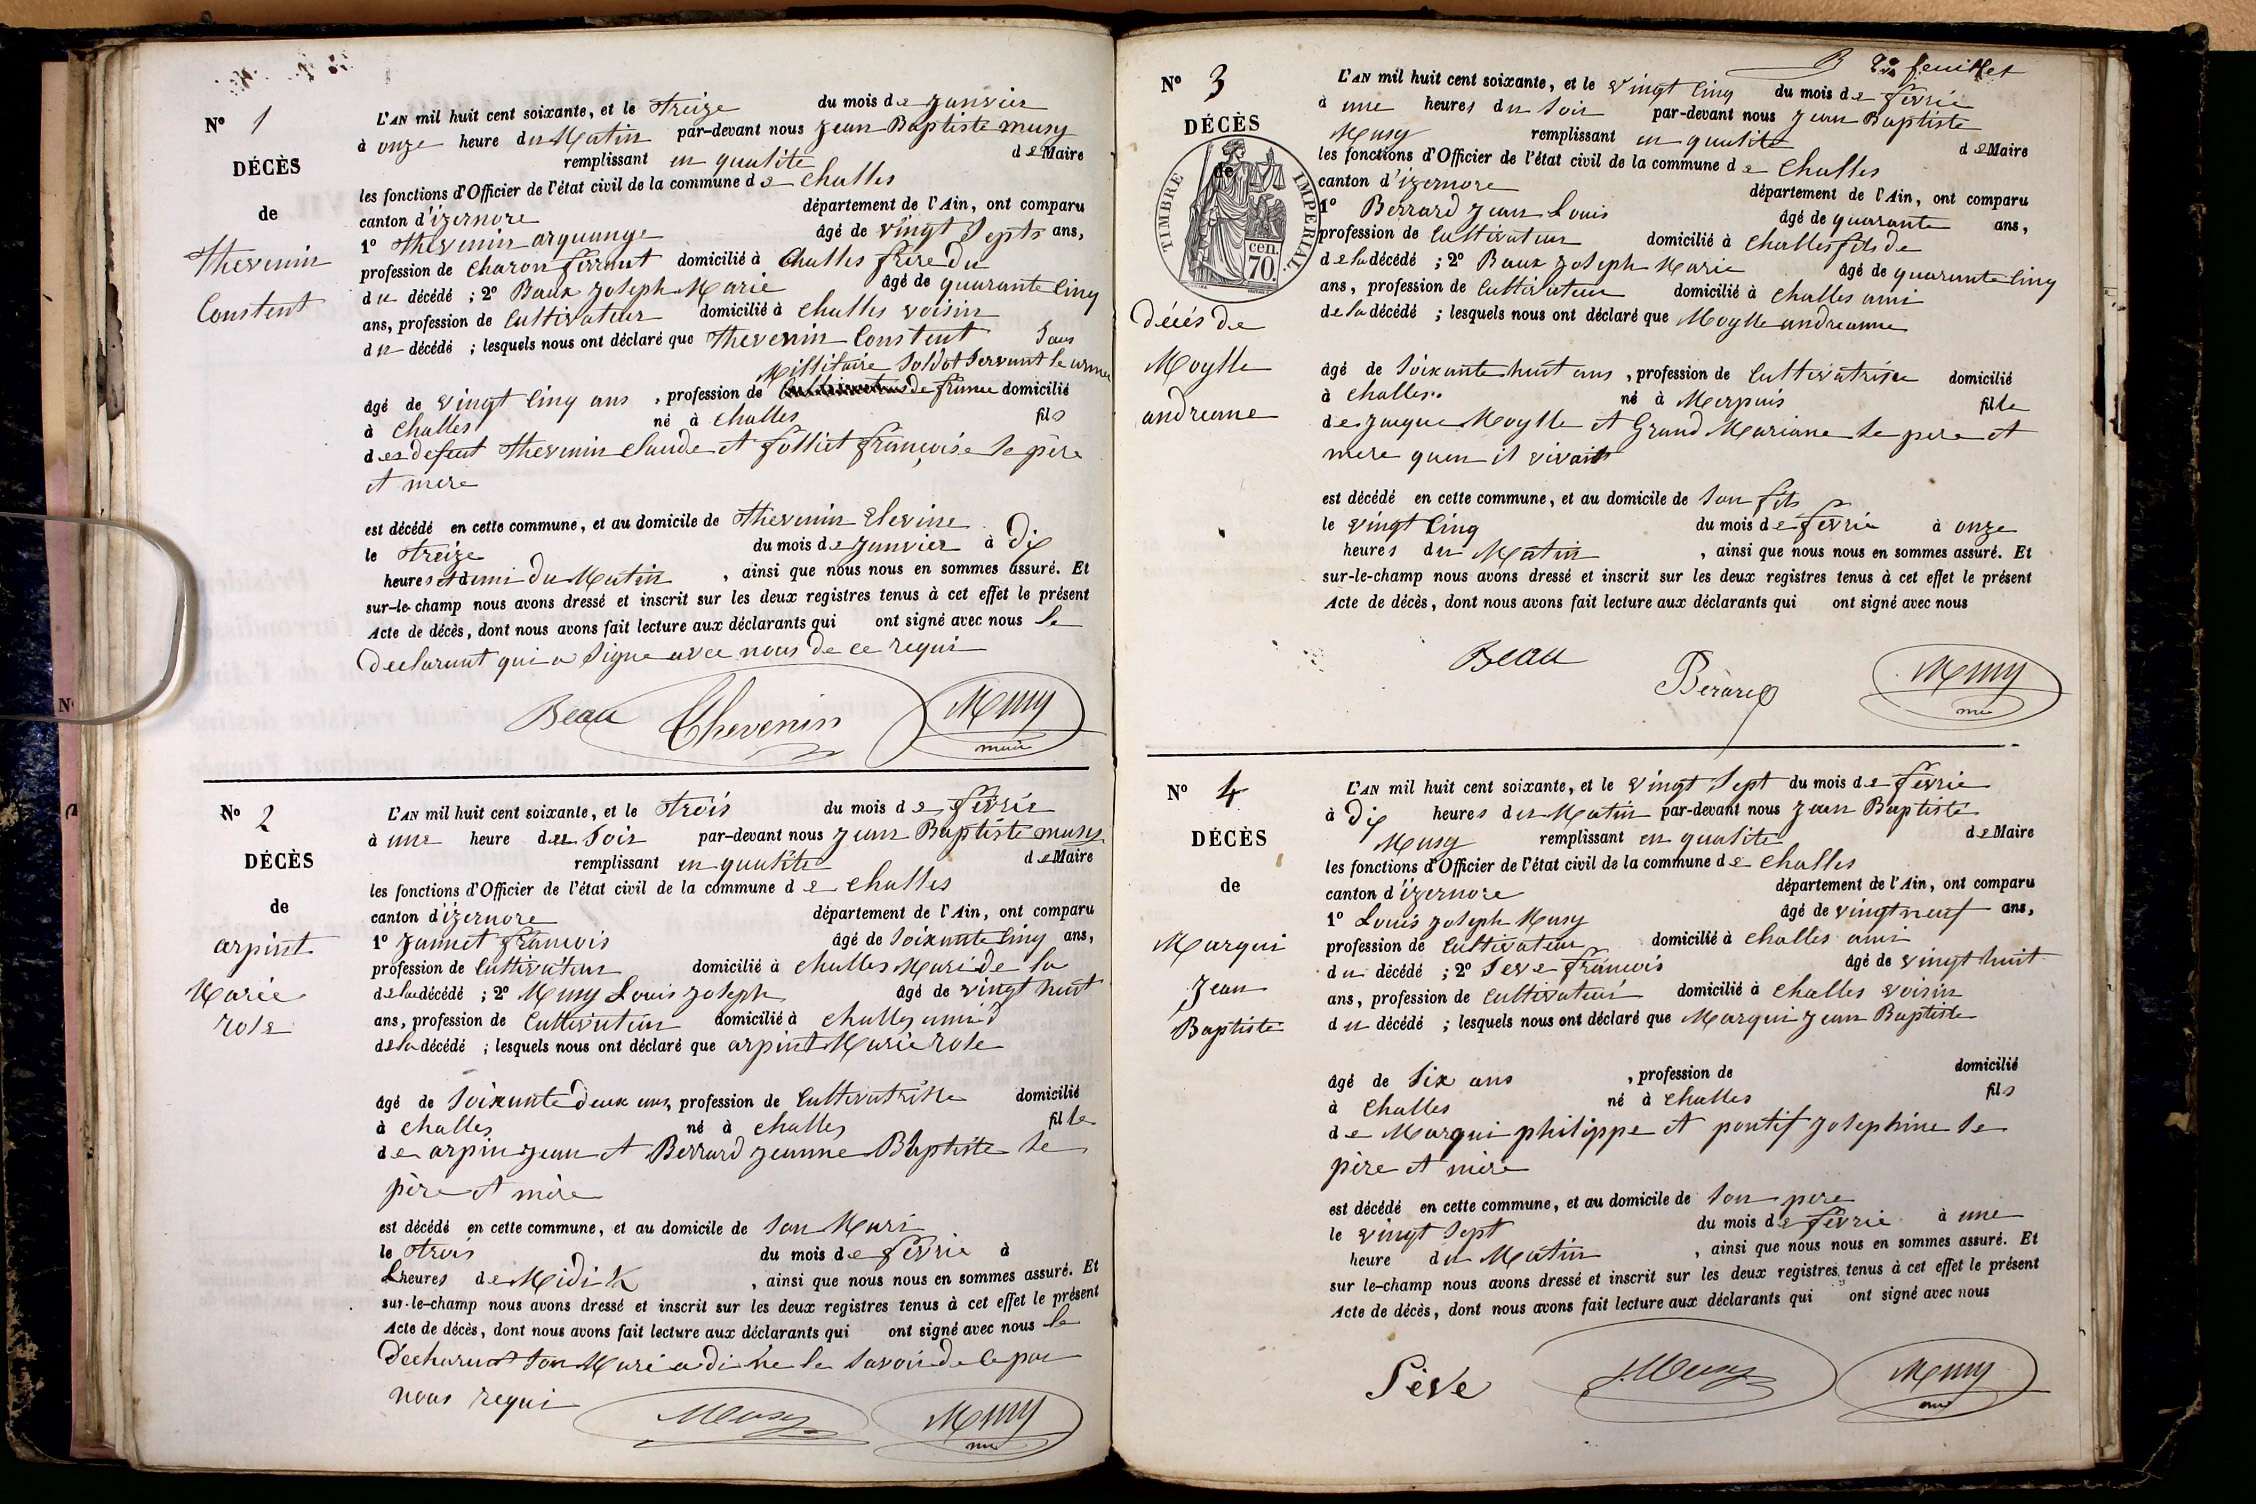 N° 1
DÉCÈS
de
thevenin
Constent
L'AN mil huit cent soixante, et le treize du mois de janvier
à onze heure du Matin par-devant nous jean Baptiste musy
remplissant en qualite de Maire
les fonctions d'Officier de l'état civil de la commune de challes
canton d'izernore département de l'Ain, ont comparu
1° thevenin arquange âgé de vingt Septs ans,
profession de charon ferrant domicilié à challes frère du
du décédé ; 2° Baux joseph Marie âgé de quarante Cinq
ans, profession de Cultivateur domicilié à challes voisin
du décédé ; lesquels nous ont déclaré que thevenin Constent
Millitaire Soldot Servant le armée
âgé de vingt Cinq ans , profession de de france domicilié
à challes né à challes fils
des defeut thevenin claude et folliet françoise le père
et mere
est décédé en cette commune, et au domicile de thevenin
le treize du mois de janvier à dix
heures et demi du Matin , ainsi que nous nous en sommes assuré. Et
sur-le-champ nous avons dressé et inscrit sur les deux registres tenus à cet effet le présent
Acte de décès, dont nous avons fait lecture aux déclarants qui ont signé avec nous le
declarant qui a Signe avec nous de ce requi
Beau Thevenin Musy
maire
N° 2
DÉCÈS
de
arpint
Marie
rose
L'AN mil huit cent soixante, et le trois du mois de fevrie
à une heure du Soir par-devant nous jean Baptiste musy
remplissant en qualite de Maire
les fonctions d'Officier de l'état civil de la commune de challes
canton d'izernore département de l'Ain, ont comparu
1° françois âgé de Soixante Cinq ans,
profession de Cultivateur domicilié à challes Mari de la
de la décédé ; 2° Musy Louis joseph âgé de vingt huit
ans, profession de Cultivateur domicilié à challes ami d
de la décédé ; lesquels nous ont déclaré que arpint Marie rose
âgé de Soixante deux ans, profession de Cultivatrisse domicilié
à challes né à challes fille
de arpin jean et Berrard jeanne Baptiste le
père et mère
est décédé en cette commune, et au domicile de Son Mari
le trois du mois de fevrie à
heures de Midi , ainsi que nous nous en sommes assuré. Et
sur-le-champ nous avons dressé et inscrit sur les deux registres tenus à cet effet le présent
Acte de décès, dont nous avons fait lecture aux déclarants qui ont signé avec nous le
Son Mari a di ne le Savoir de ce par
nous requi
Musy Musy
N° 3
2e feuillet
DÉCÈS
de
TIMBRE IMPERIAL.
70 cen.
décés de
Moylle
andreanne
L'AN mil huit cent soixante, et le vingt Cinq du mois de fevrie
à une heures du Soir par-devant nous jean Baptiste
Musy remplissant en qualite de Maire
les fonctions d'Officier de l'état civil de la commune de challes
canton d'izernore département de l'Ain, ont comparu
1° Berrard jean Louis âgé de quarante ans,
profession de Cultivateur domicilié à challes fils de
de la décédé ; 2° Baux joseph Marie âgé de quarante Cinq
ans, profession de Cultivateur domicilié à challes ami
de la décédé ; lesquels nous ont déclaré que Moylle andreanne
âgé de Soixante huit ans , profession de Cultivatrise domicilié
à challes. né à Merpuis fille
de jacque Moylle et Grand Mariane le pere et
mere quen il vivait
est décédé en cette commune, et au domicile de Son fils
le vingt Cinq du mois de fevrie à onze
heures du Matin , ainsi que nous nous en sommes assuré. Et
sur-le-champ nous avons dressé et inscrit sur les deux registres tenus à cet effet le présent
Acte de décès, dont nous avons fait lecture aux déclarants qui ont signé avec nous
Beau Berard Musy
N° 4
DÉCÈS
de
Marqui
Jean
Baptiste
L'AN mil huit cent soixante, et le vingt Sept du mois de fevrie
à dix heures du Matin par-devant nous jean Baptiste
Musy remplissant en qualite de Maire
les fonctions d'Officier de l'état civil de la commune de challes
canton d'izernore département de l'Ain, ont comparu
1° Louis joseph Musy âgé de vingt neuf ans,
profession de Cultivateur domicilié à challes ami
du décédé ; 2° Seve françois âgé de vingt huit
ans, profession de Cultivateur domicilié à challes voisin
du décédé ; lesquels nous ont déclaré que Marqui jean Baptiste
âgé de Six ans , profession de domicilié
à challes né à challes fils
de Marqui philippe et pontif josephine le
père et mère
est décédé en cette commune, et au domicile de Son pere
le vingt Sept du mois de fevrie à une
heure du Matin , ainsi que nous nous en sommes assuré. Et
sur le-champ nous avons dressé et inscrit sur les deux registres tenus à cet effet le présent
Acte de décès, dont nous avons fait lecture aux déclarants qui ont signé avec nous
Sève Musy Musy